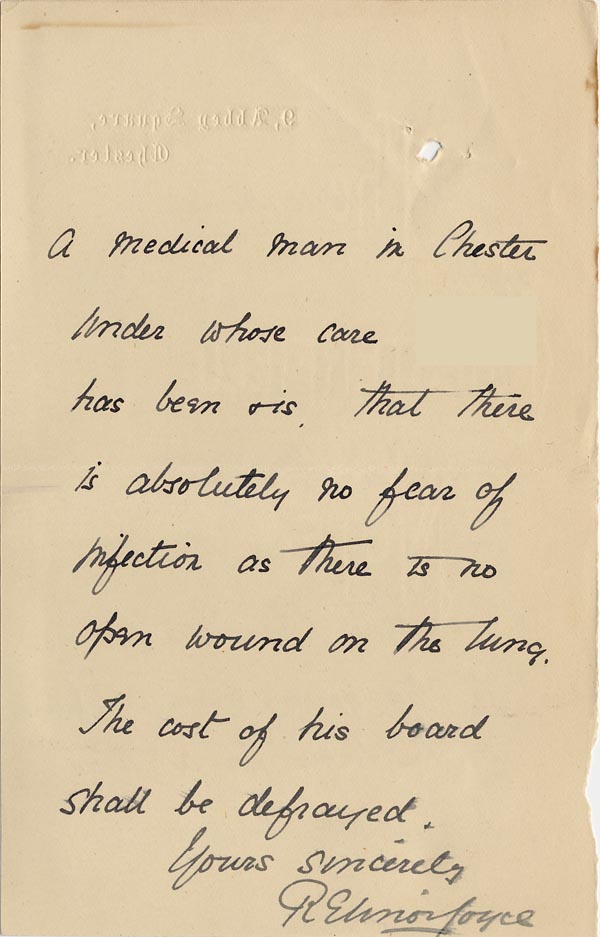 9, Abbey Square,
Chester.
A medical man in Chester
under whose care
has been & is, that there
is absolutely no fear of
infection as there is no
open wound on the lung.
The cost of his board
shall be defrayed.
Yours sincerely
R Elinor Joyce